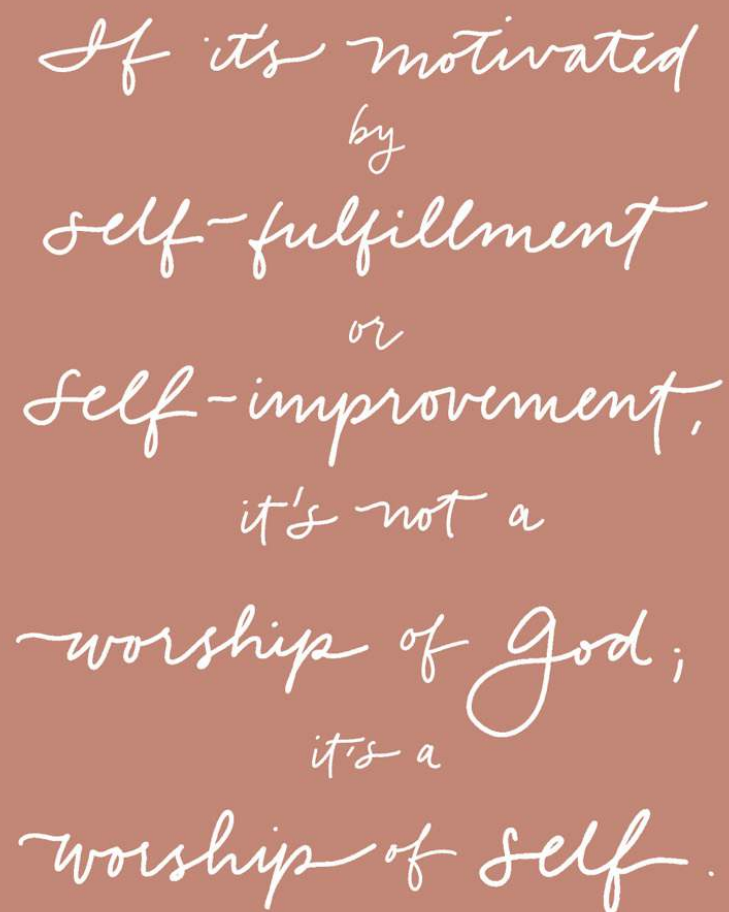 If it's motivated
by
self-fulfillment
or
self-improvement,
it's not a
worship of God;
it's a
worship of self.